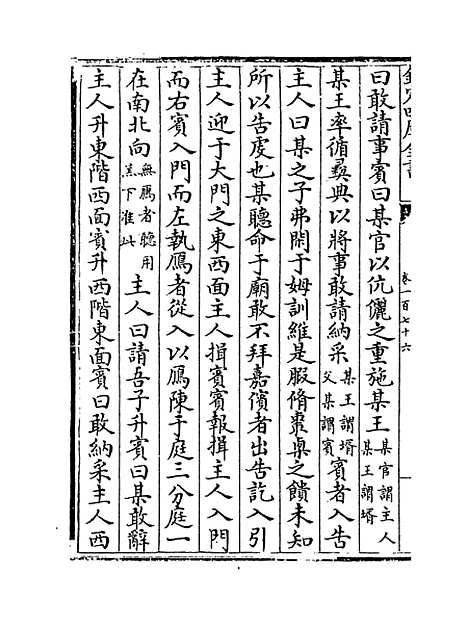 欽定四庫全書
卷一百七十六
曰敢請事賓曰某官以伉儷之重施某王某官謂主人某王謂壻
某王率循彛典以將事敢請納采某王謂壻父某謂賓賓者入告
主人曰某之子弗閑于姆訓維是腶脩棗㮚之饋未知
所以告虔也某聽命于廟敢不拜嘉儐者出告訖入引
主人迎于大門之東西面主人揖賓賓報揖主人入門
而右賓入門而左執鴈者從入以鴈陳于庭三分庭一
在南北向無鴈者聽用羔下准此主人曰請吾子升賓曰某敢辭
主人升東階西面賓升西階東面賓曰敢納采主人西